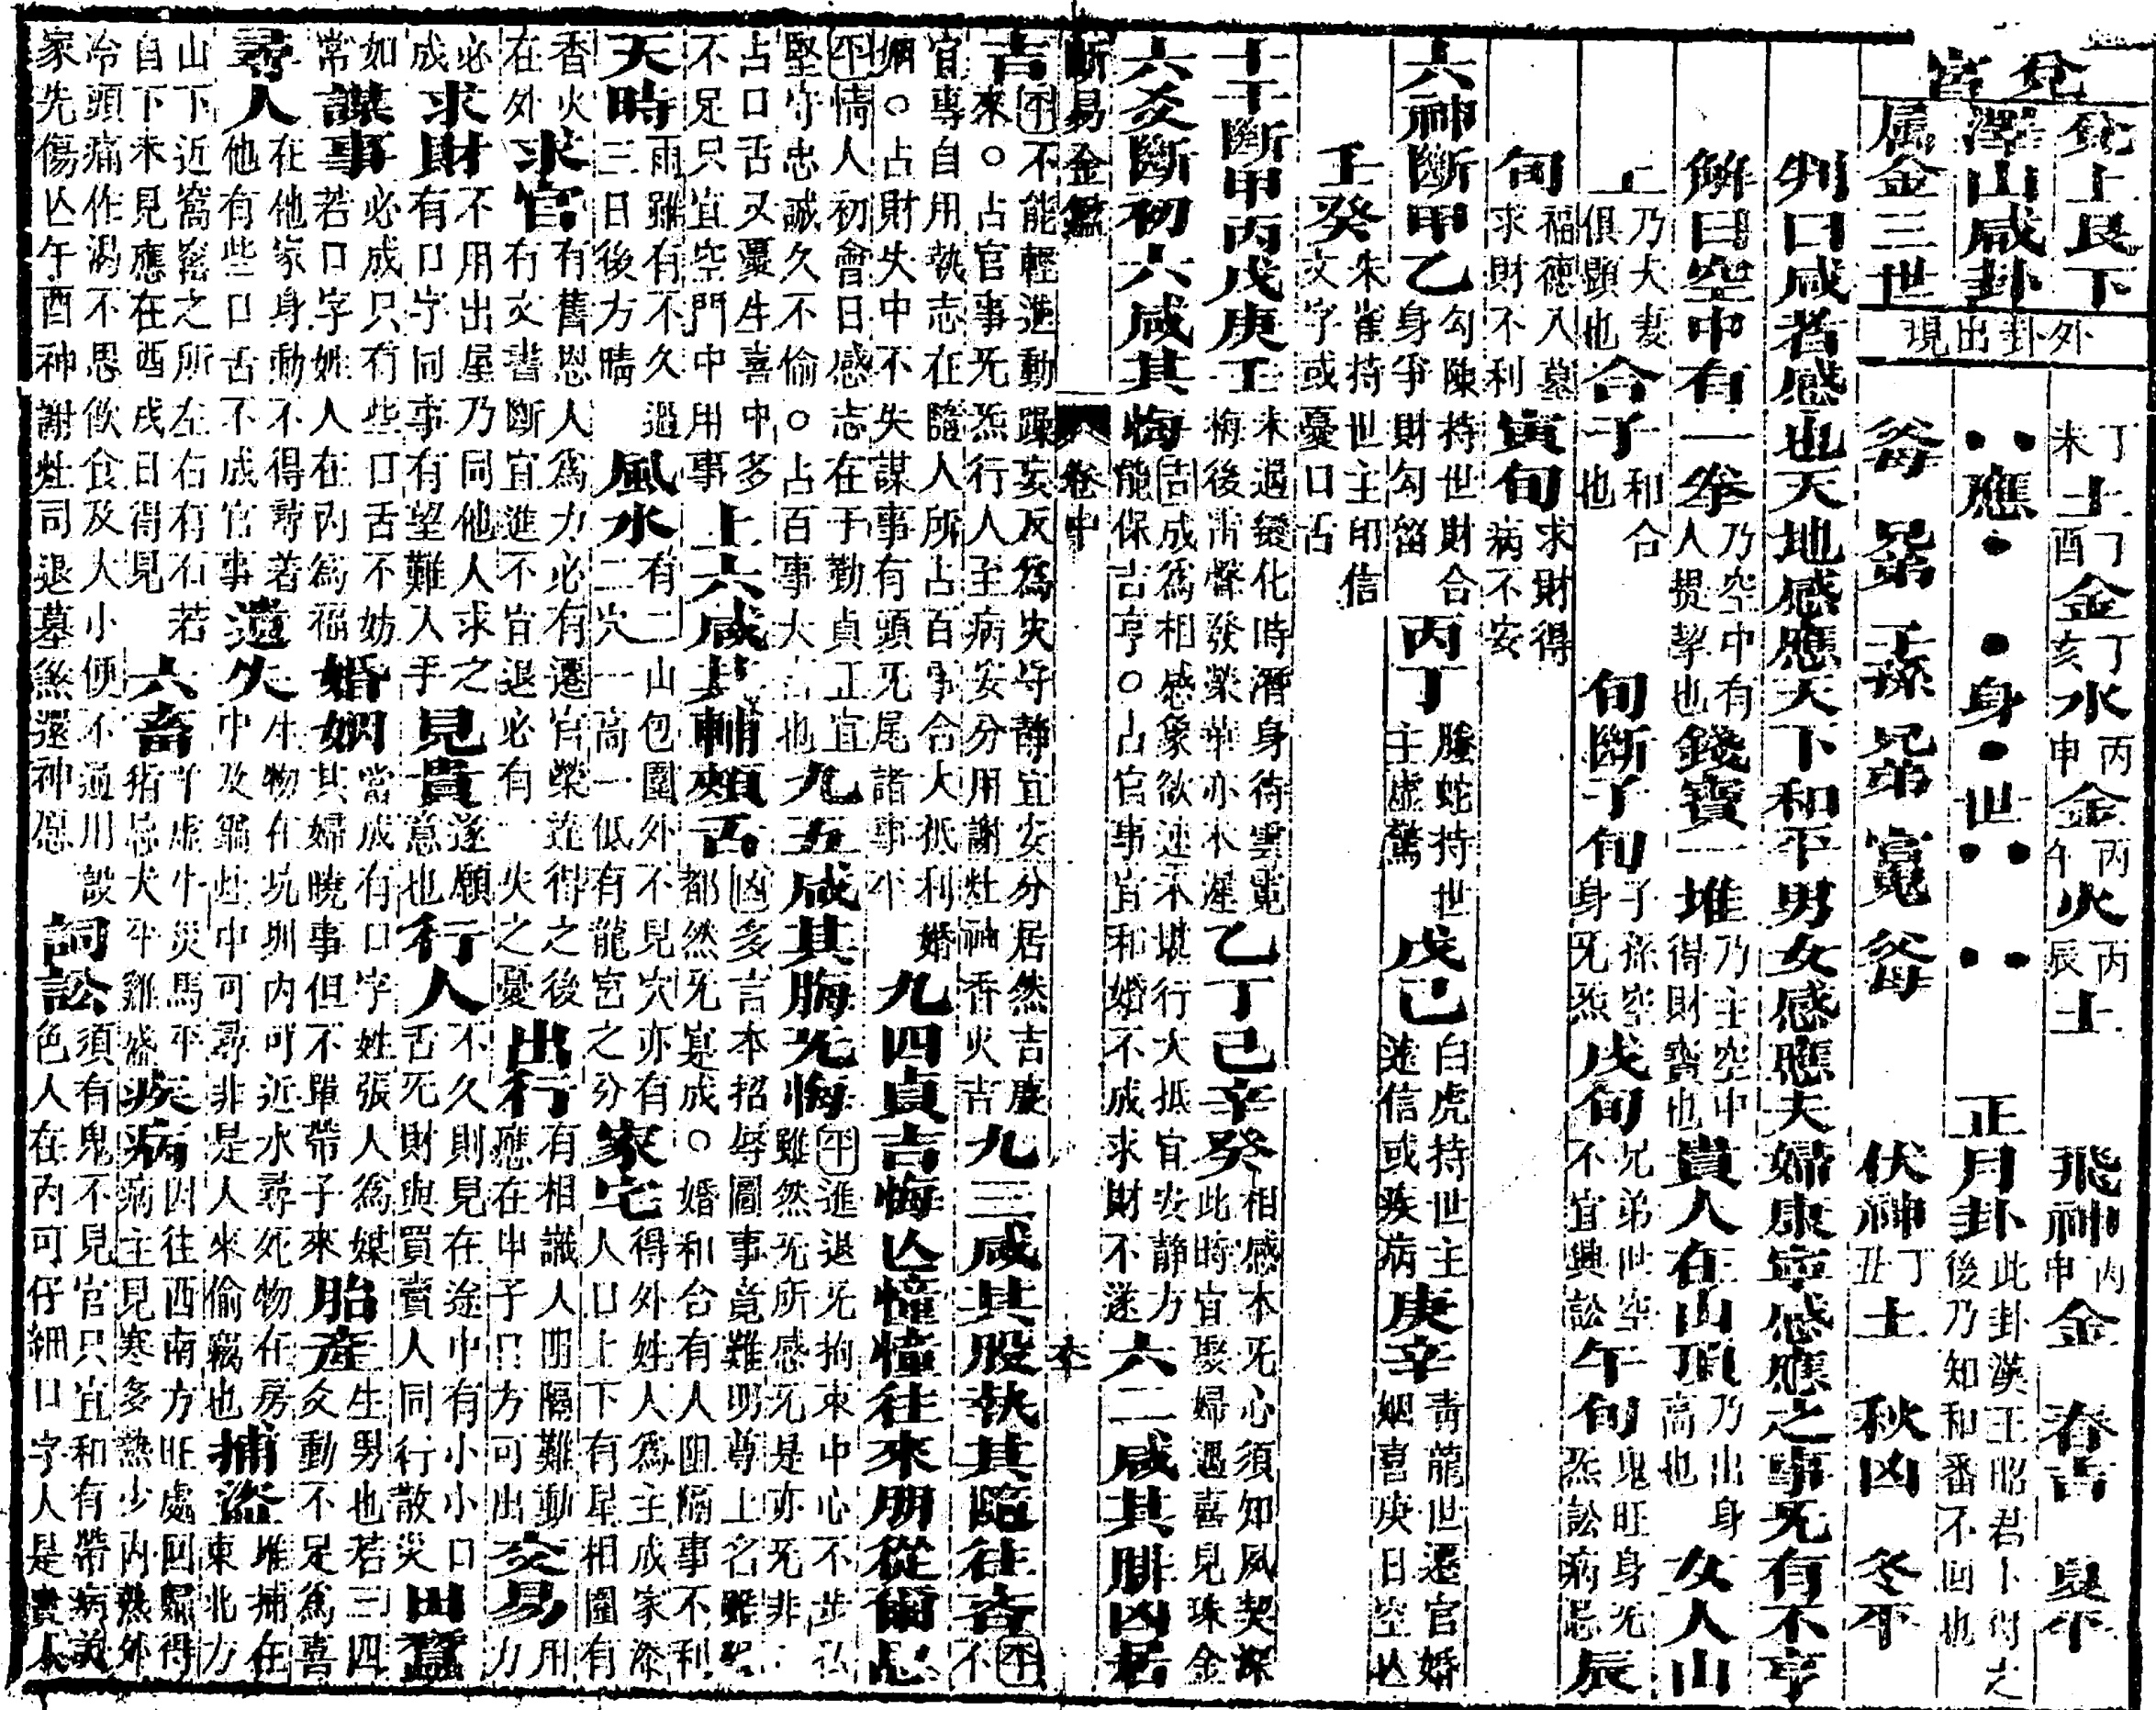 兌宮
兌上艮下
澤山咸卦
属金三世
外卦出現
丁未土 丁酉金 丁亥水 丙申金 丙午火 丙辰土
應 身 世
父母 兄弟 子孫 兄弟 官鬼 父母
飛神丙申金 春吉 夏平
正月卦 此卦漢王昭君卜得之後乃知和番不回也
伏神丁丑土 秋凶 冬平
判曰咸者感也天地感應天下和平男女感應夫婦康寧感應之事无有不亨
解曰空中有一拳 乃空中有人提挈也 錢寶一堆 乃主空中得財寶也 貴人在山頂 乃出身高也 女人山
上 乃大妻俱顯也 合子 和合也 旬斷子旬 子孫空身旡炁 戌旬 兄弟世空不宜興訟 午旬 鬼旺身旡炁訟病忌 辰
旬 福德入墓求財不利 寅旬 求財得病不安
六神斷甲乙 勾陳持世財合身爭財勾留 丙丁 螣蛇持世主虛驚 戊己 白虎持世主遠信或疾病 庚辛 青龍世遷官婚姻喜庚日空亾
壬癸 朱雀持世主印信文字或憂口舌
十干斷甲丙戊庚壬 未遇變化時潛身待雲霓 梅後雷聲發榮華亦不遲 乙丁己辛癸 相感本旡心須知夙契深 此時宜娶婦遇喜見珠金
六爻斷初六咸其拇 吉成為相感象欲速不堪行大抵宜安靜方能保吉亨○占官事宜和婚不成求財不遂 六二咸其腓凶居
斷易金鑑 卷中
吉 平不能輕進動躁妄反為失守靜宜安分居然吉慶來○占官事旡炁行人至病安分用謝灶神香火吉 九三咸其股執其隨往吝 平不
宜專自用執志在隨人所占百事合大抵利婚姻○占財失中不失謀事有頭旡尾諸事平 九四貞吉悔亾憧憧往來朋從爾思
平情人初會日感志在于勤貞正宜堅守忠誠久不偷○占百事大吉也 九五咸其脢旡悔 平進退旡拘束中心不步弘雖然旡所感旡是亦旡非
占口舌又憂生喜中多不足只宜空門中用事 上六咸其輔頰舌 凶多言本招辱圖事竟難明尊上名雖然都然旡寔成○婚和合有人阻隔事不利
天時 雨雖有不久三日後方晴 風水 有二山包圍外不見穴亦有二穴一高一低有龍宮之分 家宅 得外姓人為主成家添人口上下有星相圍有
香火在外 求官 有舊恩人為力必有遷官榮進得之後有文書斷宜進不宜退必有一失之憂 出行 有相識人朋隔難動應在申子日方可出 交易 用力
必成 求財 不用出屋乃同他人求之遂願有口字同事有望難入手 見貴 意也 行人 不久則見在途中有小小口舌旡財與買賣人同行散災 田蠶
如常 謀事 必成只有些口舌不妨若口字姓人在內為福 婚姻 當成有口字姓張人為媒其婦曉事但不單帶子來 胎產 生男也若三四爻動不足為喜
尋人 在他家身動不得尋著他有些口舌不成官事 遺失 生物在坑圳內可近水尋死物在房中及鄰灶中可尋非是人來偷竊也 捕盜 堆捕在東北力
山下近窩窰之所左右有石若自下未見應在酉戌日得見 六畜 牛虛牛災馬平猪忌犬平雞盛 疾病 因往西南方旺處回歸得病主見寒多熱少內熱外
冷頭痛作渴不思飲食及大小便不通用設家先傷亾午酉神謝灶司退墓煞還神愿 詞訟 須有鬼不見官只宜和有帶病說色人在內可仔細口字人是貴人